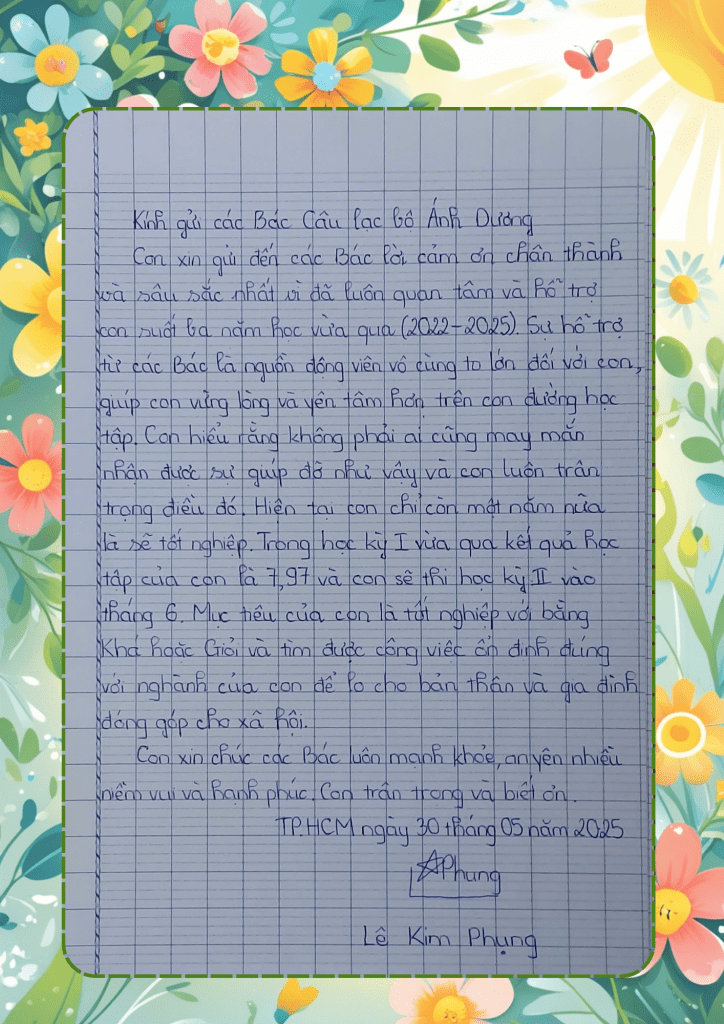 Kính gửi các Bác Câu lạc bộ Ánh Dương
Con xin gửi đến các Bác lời cảm ơn chân thành
và sâu sắc nhất vì đã luôn quan tâm và hỗ trợ
con suốt ba năm học vừa qua (2022-2025). Sự hỗ trợ
từ các Bác là nguồn động viên vô cùng to lớn đối với con,
giúp con vững lòng và yên tâm hơn trên con đường học
tập. Con hiểu rằng không phải ai cũng may mắn
nhận được sự giúp đỡ như vậy và con luôn trân
trọng điều đó. Hiện tại con chỉ còn một năm nữa
là sẽ tốt nghiệp. Trong học kỳ I vừa qua kết quả học
tập của con là 7,97 và con sẽ thi học kỳ II vào
tháng 6. Mục tiêu của con là tốt nghiệp với bằng
Khá hoặc Giỏi và tìm được công việc ổn định đúng
với nghành của con để lo cho bản thân và gia đình
đóng góp cho xã hội.
Con xin chúc các Bác luôn mạnh khỏe, an yên nhiều
niềm vui và hạnh phúc. Con trân trọng và biết ơn.
TP.HCM ngày 30 tháng 05 năm 2025
Phung
Lê Kim Phụng